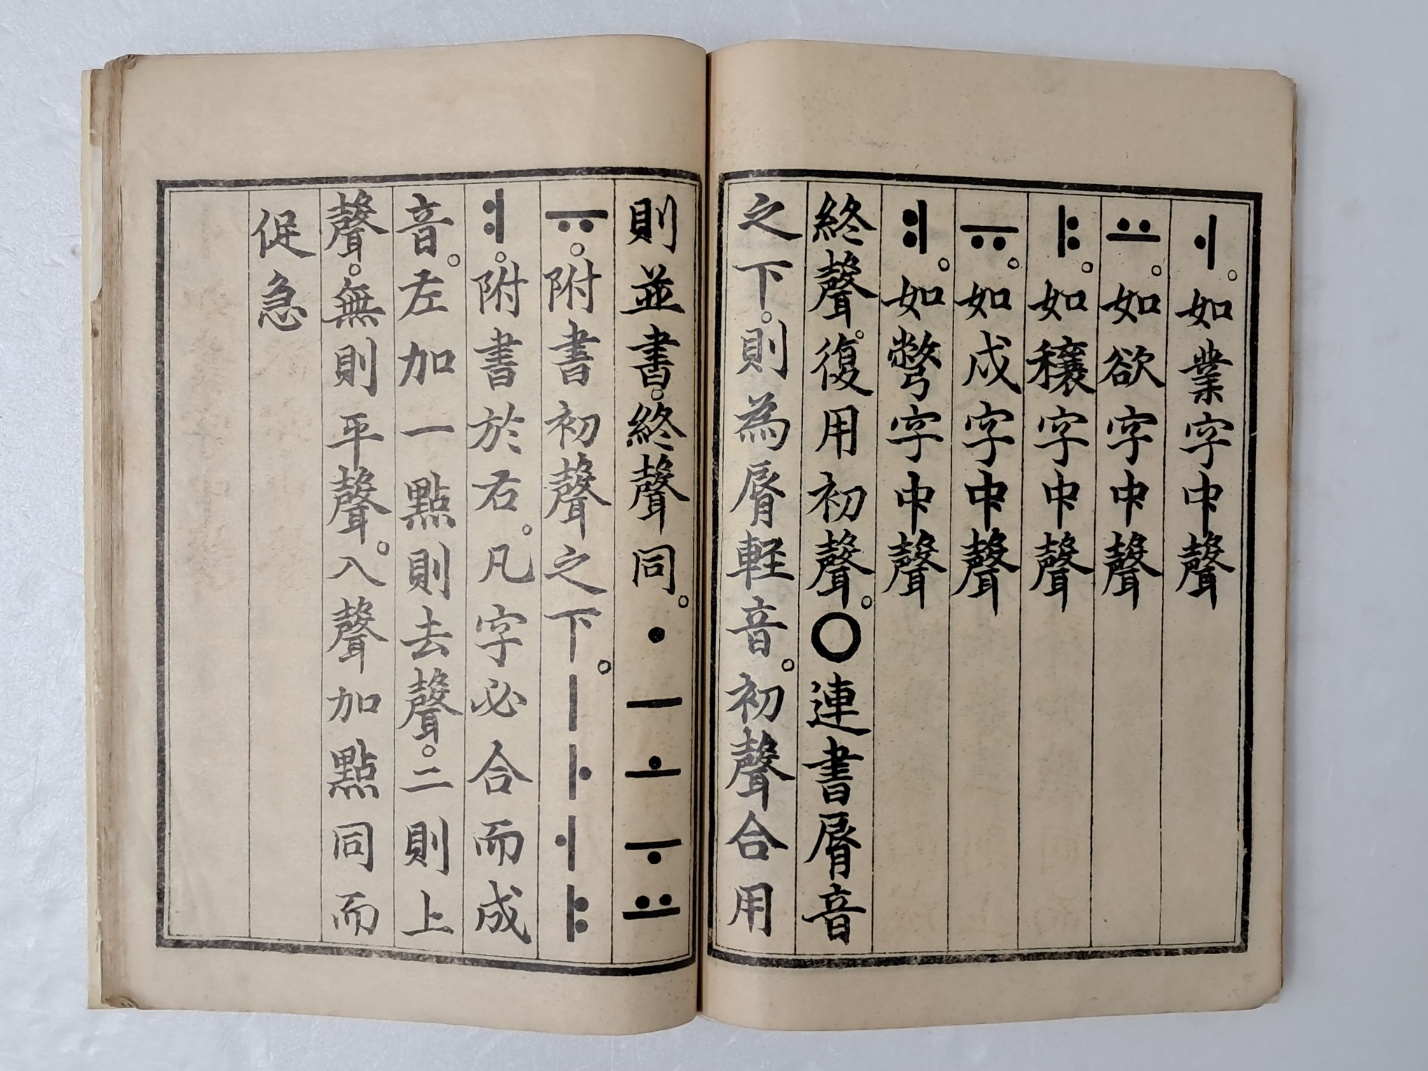 ㅓ。如業字中聲
ㅛ。如欲字中聲
ㅑ。如穰字中聲
ㅠ。如戌字中聲
ㅕ。如彆字中聲
終聲。復用初聲。ㅇ連書脣音
之下。則為脣軽音。初聲合用
則並書。終聲同。ㆍㅡㅗㅜㅛ
ㅠ。附書初聲之下。ㅣㅏㅓㅑ
ㅕ。附書於右。凡字必合而成
音。左加一點則去聲。二則上
聲。無則平聲。入聲加點同而
促急